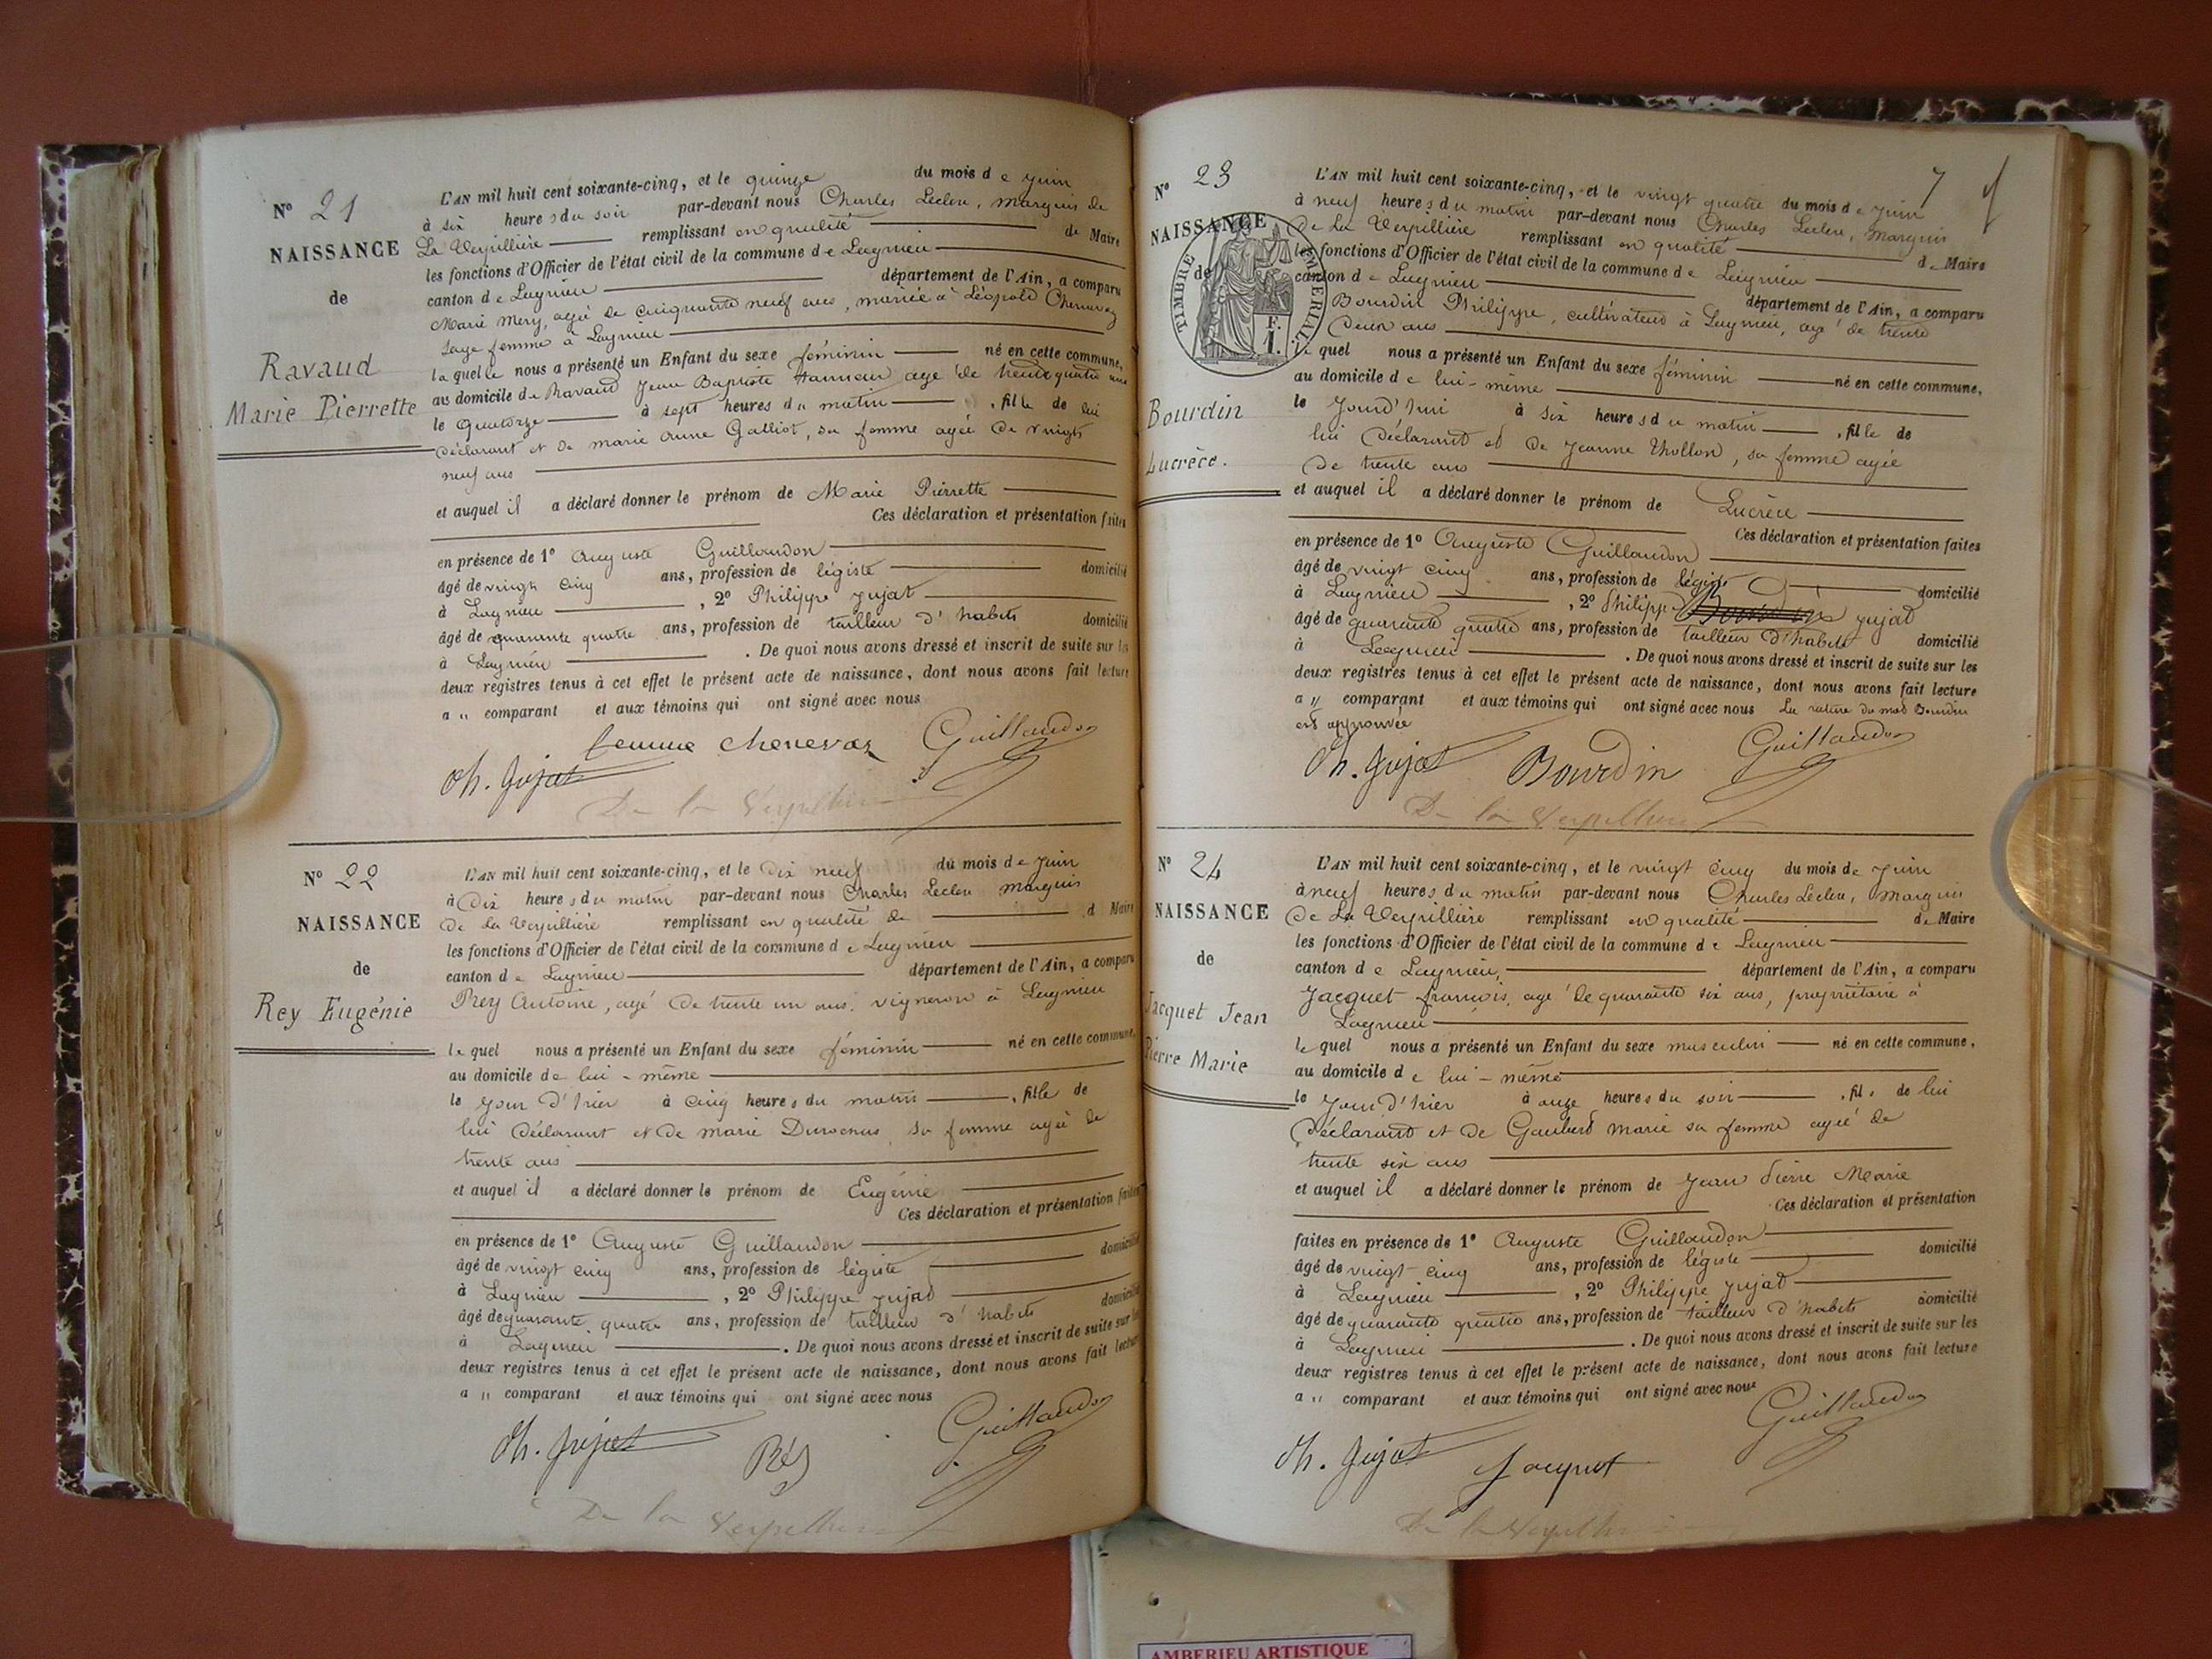 Nº 21
NAISSANCE
de
Ravaud
Marie Pierrette
L'AN mil huit cent soixante-cinq, et le quinze du mois de juin
à six heures du soir par-devant nous Charles Leclerc, marquis de
La Verpillière remplissant en qualité de Maire
les fonctions d'Officier de l'état civil de la commune de Lagnieu
canton de Lagnieu département de l'Ain, a comparu
Marie Mery, agée de cinquante neuf ans, mariée à Léopold Chenavaz
sage femme à Lagnieu
laquelle nous a présenté un Enfant du sexe féminin né en cette commune,
au domicile de Ravaud Jean Baptiste agé de trente quatre ans
le quatorze à sept heures du matin, fille de lui
déclarant et de marie anne Galliot, sa femme agée de vingt
neuf ans
et auquel il a déclaré donner le prénom de Marie Pierrette
Ces déclaration et présentation faites
en présence de 1º Auguste Guillaudon
âgé de vingt cinq ans, profession de légiste domicilié
à Lagnieu, 2º Philippe jujat
âgé de quarante quatre ans, profession de tailleur d'habits domicilié
à Lagnieu. De quoi nous avons dressé et inscrit de suite sur les
deux registres tenus à cet effet le présent acte de naissance, dont nous avons fait lecture
a " comparant et aux témoins qui ont signé avec nous
femme chenevaz Guillaudon
Ph. Jujat
De la Verpilliere
Nº 22
NAISSANCE
de
Rey Eugénie
L'AN mil huit cent soixante-cinq, et le dix neuf du mois de juin
à Dix heures du matin par-devant nous Charles Leclerc marquis
de la Verpillière remplissant en qualité de d Maire
les fonctions d'Officier de l'état civil de la commune de Lagnieu
canton de Lagnieu département de l'Ain, a comparu
Rey Antoine, agé de trente un ans, vigneron à Lagnieu
lequel nous a présenté un Enfant du sexe féminin né en cette commune,
au domicile de lui-même
le jour d'hier à cinq heures du matin, fille de
lui déclarant et de marie sa femme agée de
trente ans
et auquel il a déclaré donner le prénom de Eugénie
Ces déclaration et présentation faites
en présence de 1º Auguste Guillaudon
âgé de vingt cinq ans, profession de légiste domicilié
à Lagnieu, 2º Philippe jujat
âgé de quarante quatre ans, profession de tailleur d'habits domicilié
à Lagnieu. De quoi nous avons dressé et inscrit de suite sur les
deux registres tenus à cet effet le présent acte de naissance, dont nous avons fait lecture
a " comparant et aux témoins qui ont signé avec nous
Guillaudon
Ph. Jujat Réy
De la Verpilliere
7
Nº 23
NAISSANCE
de
TIMBRE IMPERIAL
F. 1.
Bourdin
Lucrèce.
L'AN mil huit cent soixante-cinq, et le vingt quatre du mois de juin
à neuf heures du matin par-devant nous Charles Leclerc, marquis
De La Verpillière remplissant en qualité de Maire
les fonctions d'Officier de l'état civil de la commune de Lagnieu
canton de Lagnieu département de l'Ain, a comparu
Bourdin Philippe, cultivateur à Lagnieu, agé de trente
deux ans
lequel nous a présenté un Enfant du sexe féminin né en cette commune,
au domicile de lui-même
le jourd'hui à six heures du matin, fille de
lui déclarant et de Jeanne Thollon, sa femme agée
de trente ans
et auquel il a déclaré donner le prénom de Lucrèce
Ces déclaration et présentation faites
en présence de 1º Auguste Guillaudon
âgé de vingt cinq ans, profession de légiste domicilié
à Lagnieu, 2º Philippe Bourdin jujat
âgé de quarante quatre ans, profession de tailleur d'habits domicilié
à Lagnieu. De quoi nous avons dressé et inscrit de suite sur les
deux registres tenus à cet effet le présent acte de naissance, dont nous avons fait lecture
a " comparant et aux témoins qui ont signé avec nous La rature du mot Bourdin
est approuvée
Ph. Jujat Bourdin Guillaudon
De la Verpilliere
Nº 24
NAISSANCE
de
Jacquet Jean
Pierre Marie
L'AN mil huit cent soixante-cinq, et le vingt cinq du mois de juin
à neuf heures du matin par-devant nous Charles Leclerc, Marquis
De La Verpillière remplissant en qualité de Maire
les fonctions d'Officier de l'état civil de la commune de Lagnieu
canton de Lagnieu, département de l'Ain, a comparu
Jacquet françois, agé de quarante six ans, propriétaire à
Lagnieu
lequel nous a présenté un Enfant du sexe masculin né en cette commune,
au domicile de lui-même
le jour d'hier à onze heures du soir, fils de lui
déclarant et de Gaubert marie sa femme agée de
trente six ans
et auquel il a déclaré donner le prénom de Jean Pierre Marie
Ces déclaration et présentation
faites en présence de 1º Auguste Guillaudon
âgé de vingt cinq ans, profession de légiste domicilié
à Lagnieu, 2º Philippe jujat
âgé de quarante quatre ans, profession de tailleur d'habits domicilié
à Lagnieu. De quoi nous avons dressé et inscrit de suite sur les
deux registres tenus à cet effet le présent acte de naissance, dont nous avons fait lecture
a " comparant et aux témoins qui ont signé avec nous
Guillaudon
Ph. Jujat Jacquet
De la Verpilliere
AMBERIEU ARTISTIQUE